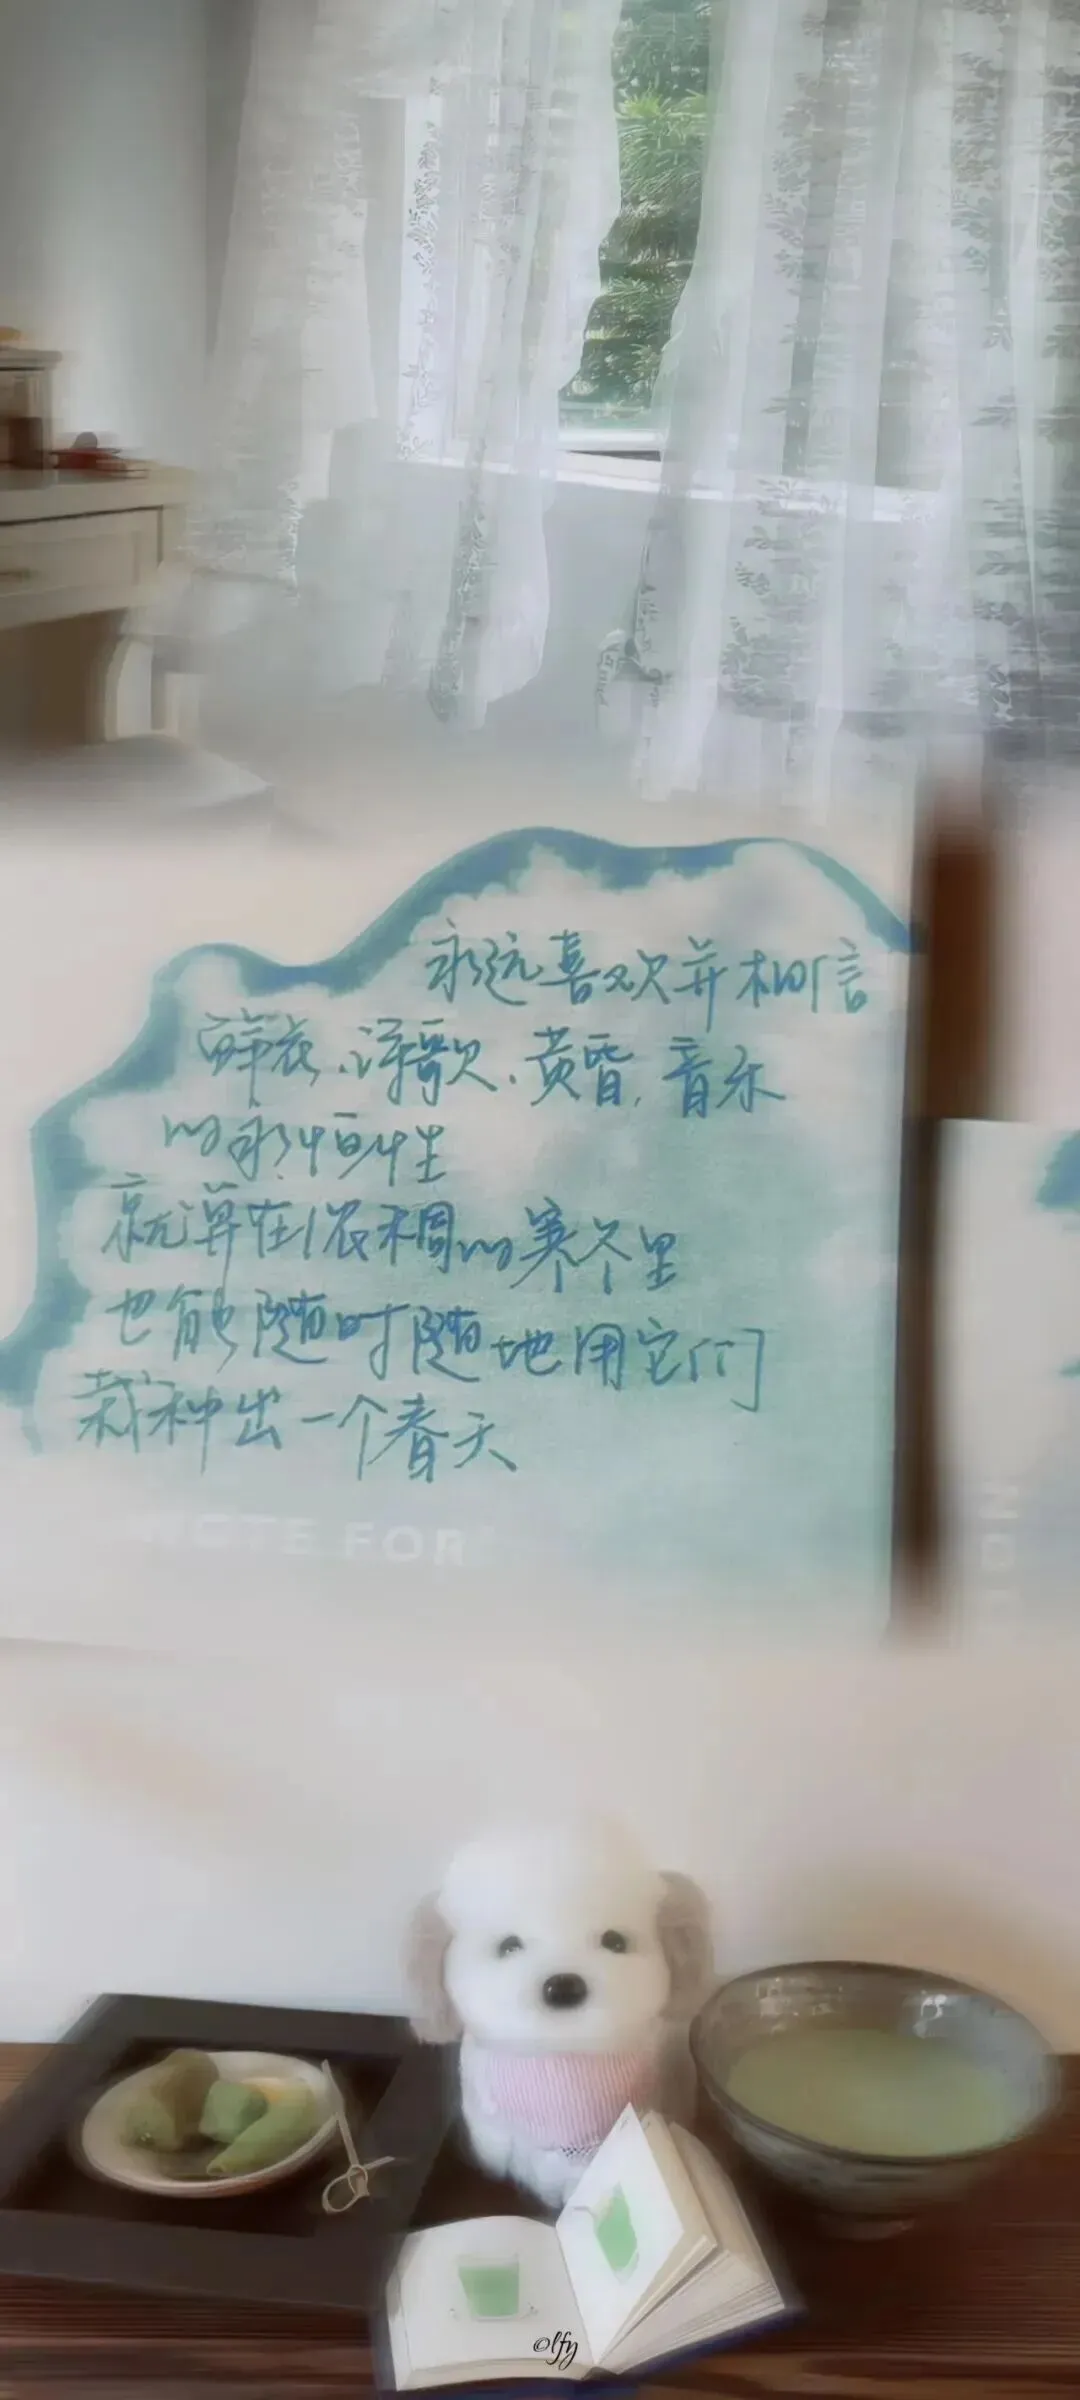 永远喜欢并相信
鲜花、诗歌、黄昏、音乐
的永恒性
就算在浓稠的寒冬里
也能随时随地用它们
栽种出一个春天
NOTE FOR
©lfy